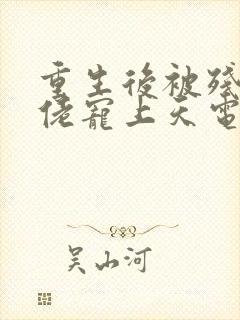 重生後被殘
佬寵上天電
吳山河